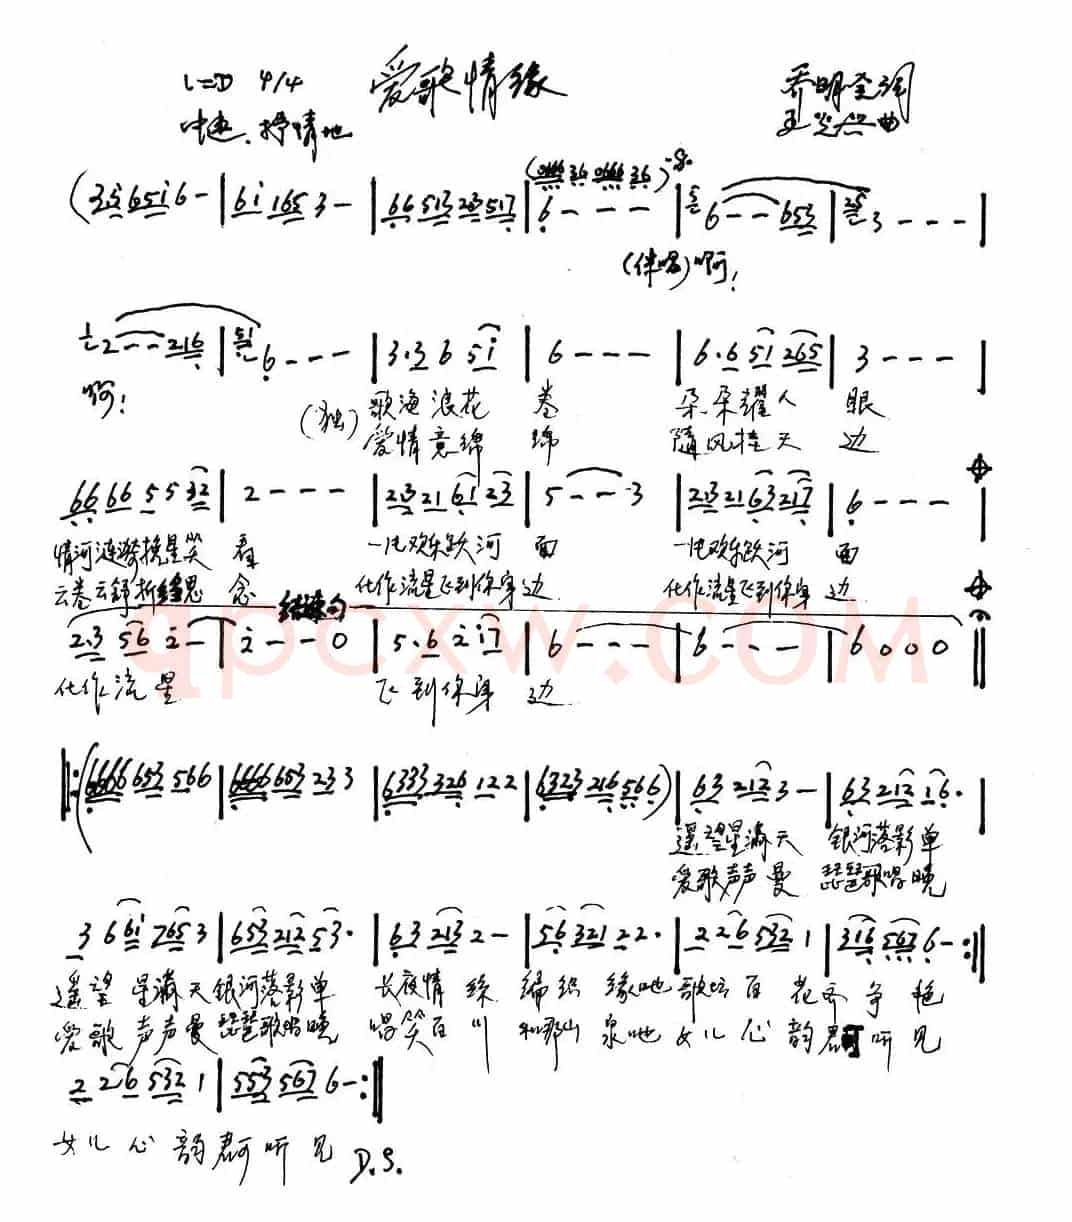 爱歌情缘
1=D 4/4
中速.抒情地
乔明奎词
曲
(3 5 6 5 i 6 - | 6 i 1 6 5 3 - | 6 6 5 1 3 2 3 5 1 7 | 6 - - - | 6 - - 6 5 3 | 3 - - - |
(伴唱)啊!
2 - - 2 1 6 | 6 - - - | 3·3 6 5 i | 6 - - - | 6·6 5 i 2 6 5 | 3 - - - |
啊! (独)歌海浪花 卷 朵朵耀人 眼
爱情意绵 绵 随风挂天 边
6 6 6 6 5 5 3 2 | 2 - - - | 2 3 2 1 6 1 2 3 | 5 - - 3 | 2 3 2 1 6 3 2 1 7 | 6 - - - |
情河涟漪挽星笑 看 欢乐跃河 面 欢乐跃河 面
云卷云舒折 思 念 化作流星飞到你身边 化作流星飞到你身 边
结束句
2·3 5 6 2 - | 2 - - 0 | 5·6 2 i 7 | 6 - - - | 6 - - - | 6 0 0 0 ‖
化作流星 飞到你身 边
qpcxw.com
‖:(6 6 6 6 6 5 3 5 6 6 | 6 6 6 6 6 5 3 2 3 3 | 6 3 3 3 3 2 6 1 2 2 | 6 3 2 3 2 1 6 5 6 6) | 6 3 2 1 2 3 - | 6 3 2 1 2 1 6· |
遥望星满天 银河落影单
爱歌声声曼 琵琶歌唱晚
3 6 6 i 7 6 5 3 | 6 5 3 2 1 2 5 3· | 6 3 2 1 3 2 - | 5 6 3 2 1 2 2· | 2 2 6 5 3 2 1 | 3 1 6 5 6 7 6 - :‖
遥望 星满天银河落影单 长夜情丝 编织 缘吔歌坛百 花齐争艳
爱歌 声声曼琵琶歌唱晚 唱笑百川 和那山 泉吔女儿心 韵君可听见
2 2 6 5 3 2 1 | 5 5 3 5 6 7 6 - :‖
女儿心 韵君可听见 D.S.